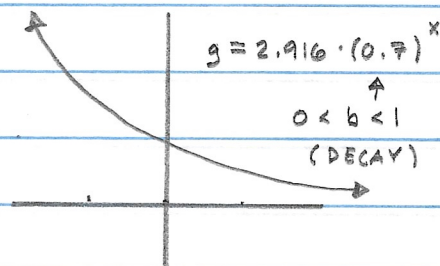 y = 2.916 · (0.7)^x
0 < b < 1
(DECAY)